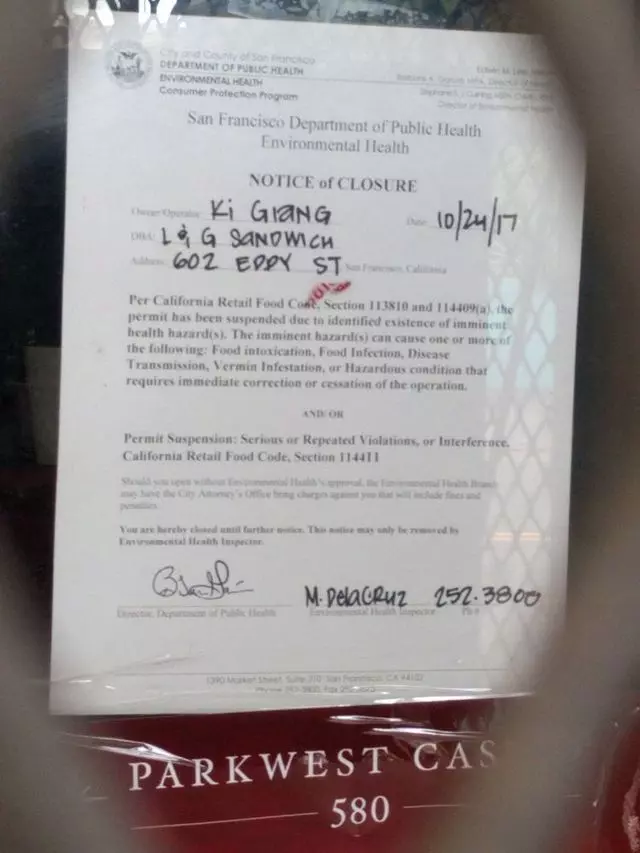 City and County of San Francisco
DEPARTMENT OF PUBLIC HEALTH
ENVIRONMENTAL HEALTH
Consumer Protection Program
San Francisco Department of Public Health
Environmental Health
NOTICE of CLOSURE
Owner/Operator Ki GiaNG Date: 10/24/17
DBA: L & G SANDWICH
Address: 602 EDDY ST San Francisco, California
Per California Retail Food Code, Section 113810 and 114409(a), the
permit has been suspended due to identified existence of imminent
health hazard(s). The imminent hazard(s) can cause one or more of
the following: Food intoxication, Food Infection, Disease
Transmission, Vermin Infestation, or Hazardous condition that
requires immediate correction or cessation of the operation.
AND/OR
Permit Suspension: Serious or Repeated Violations, or Interference.
California Retail Food Code, Section 114411
Should you open without Environmental Health's approval, the Environmental Health Branch
may have the City Attorney's Office bring charges against you that will include fines and
penalties.
You are hereby closed until further notice. This notice may only be removed by
Environmental Health Inspector.
M. DelaCRuz 252.3800
Director, Department of Public Health Environmental Health Inspector Ph #
1390 Market Street, Suite 210 San Francisco, CA 94102
PARKWEST CAS
580